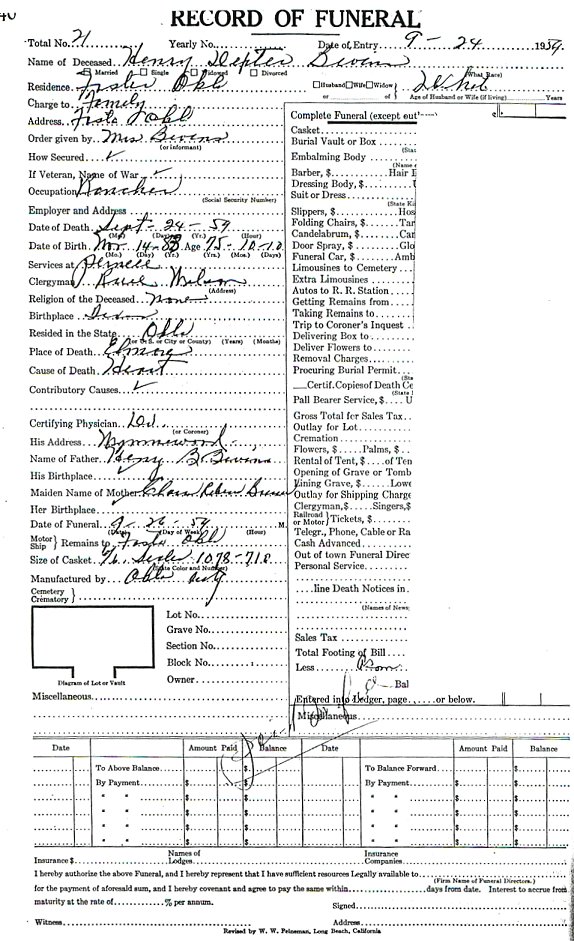 40
RECORD OF FUNERAL
Total No. 21 Yearly No. Date of Entry 9 - 24 1959
Name of Deceased Henry Bivins
Married Single Widowed Divorced
(What Race)
Residence Foster Okl Husband Wife Widow
or of Age of Husband or Wife (if living) Years
Charge to Family
Address Foster Okl
Order given by Mrs Bivins
(or informant)
How Secured ✓
If Veteran, Name of War ✓
Occupation Rancher
(Social Security Number)
Employer and Address
Date of Death Sept - 24 - 59
(Mo.) (Day) (Yr.) (Hour)
Date of Birth Nov. 14 - 83 Age 75 - 10 - 10
(Mo.) (Day) (Yr.) (Yrs.) (Mos.) (Days)
Services at Pernell
Clergyman Wilson
(Address)
Religion of the Deceased none
Birthplace
Resided in the State Okla
(or U. S. or City or County) (Years) (Months)
Place of Death Elmore
Cause of Death Heart
Contributory Causes ✓
Certifying Physician
(or Coroner)
His Address Wynnewood
Name of Father Henry B. Bivins
His Birthplace
Maiden Name of Mother
Her Birthplace
Date of Funeral 9 - 26 - 59 M.
(Date) (Day of Week) (Hour)
Motor
Ship } Remains to Foster Okl
Size of Casket 7/6 1078-718
(State Color and Number)
Manufactured by Okla
Cemetery
Crematory }
Diagram of Lot or Vault
Lot No.
Grave No.
Section No.
Block No.
Owner
Miscellaneous
Complete Funeral (except out
Casket
Burial Vault or Box
(Stat
Embalming Body
(Name o
Barber, $ Hair D
Dressing Body, $
Suit or Dress
(State K
Slippers, $ Hos
Folding Chairs, $ Tar
Candelabrum, $ Can
Door Spray, $ Glo
Funeral Car, $ Amb
Limousines to Cemetery
Extra Limousines
Autos to R. R. Station
Getting Remains from
Taking Remains to
Trip to Coroner's Inquest
Delivering Box to
Deliver Flowers to
Removal Charges
Procuring Burial Permit
(Sta
Certif. Copies of Death Ce
(State
Pall Bearer Service, $ U
Gross Total for Sales Tax
Outlay for Lot
Cremation
Flowers, $ Palms, $
Rental of Tent, $ of Ten
Opening of Grave or Tomb
Lining Grave, $ Lowe
Outlay for Shipping Charge
Clergyman, $ Singers, $
Railroad
or Motor } Tickets, $
Telegr., Phone, Cable or Ra
Cash Advanced
Out of town Funeral Direc
Personal Service
line Death Notices in
(Names of News
Sales Tax
Total Footing of Bill
Less
Bal
Entered into Ledger, page or below.
Miscellaneous
Date Amount Paid Balance Date Amount Paid Balance
To Above Balance $ To Balance Forward $ $
By Payment $ $ By Payment $ $
" " $ $ " " $ $
" " $ $ " " $ $
" " $ $ " " $ $
" " $ $ " " $ $
Insurance $ Names of Lodges Insurance Companies
I hereby authorize the above Funeral, and I hereby represent that I have sufficient resources Legally available to
(Firm Name of Funeral Directors.)
for the payment of aforesaid sum, and I hereby covenant and agree to pay the same within days from date. Interest to accrue from
maturity at the rate of % per annum. Signed
Witness Address
Revised by W. W. Feineman, Long Beach, California